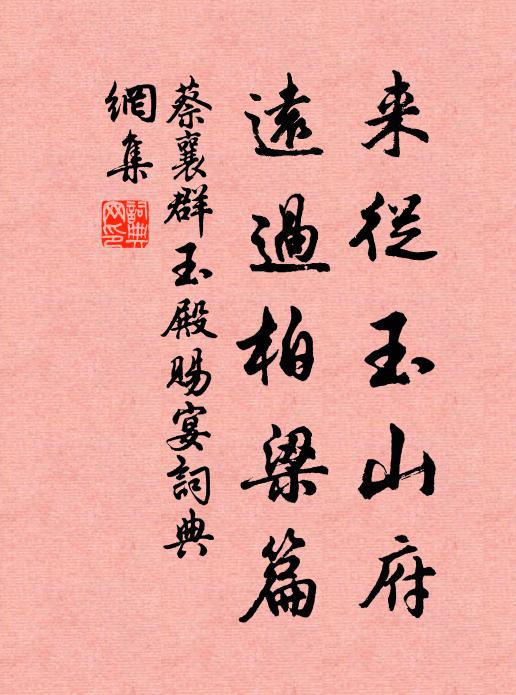 来從玉山府
遠過柏梁篇
蔡襄群玉殿賜宴詞典
網集
詞典
网集